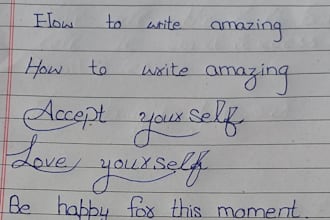 How to write amazing
How to write amazing
Accept yourself
Love yourself
Be happy for this moment.